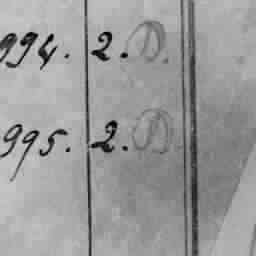 994. 2. D.
995. 2. D.